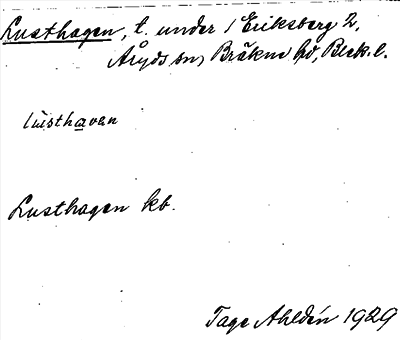 Lusthagen, t. under 1 Eriksberg 2,
Åryds sn, Bräkne hd, Blek. l.
lùsthaven
Lusthagen kb.
Tage Ahldén 1929